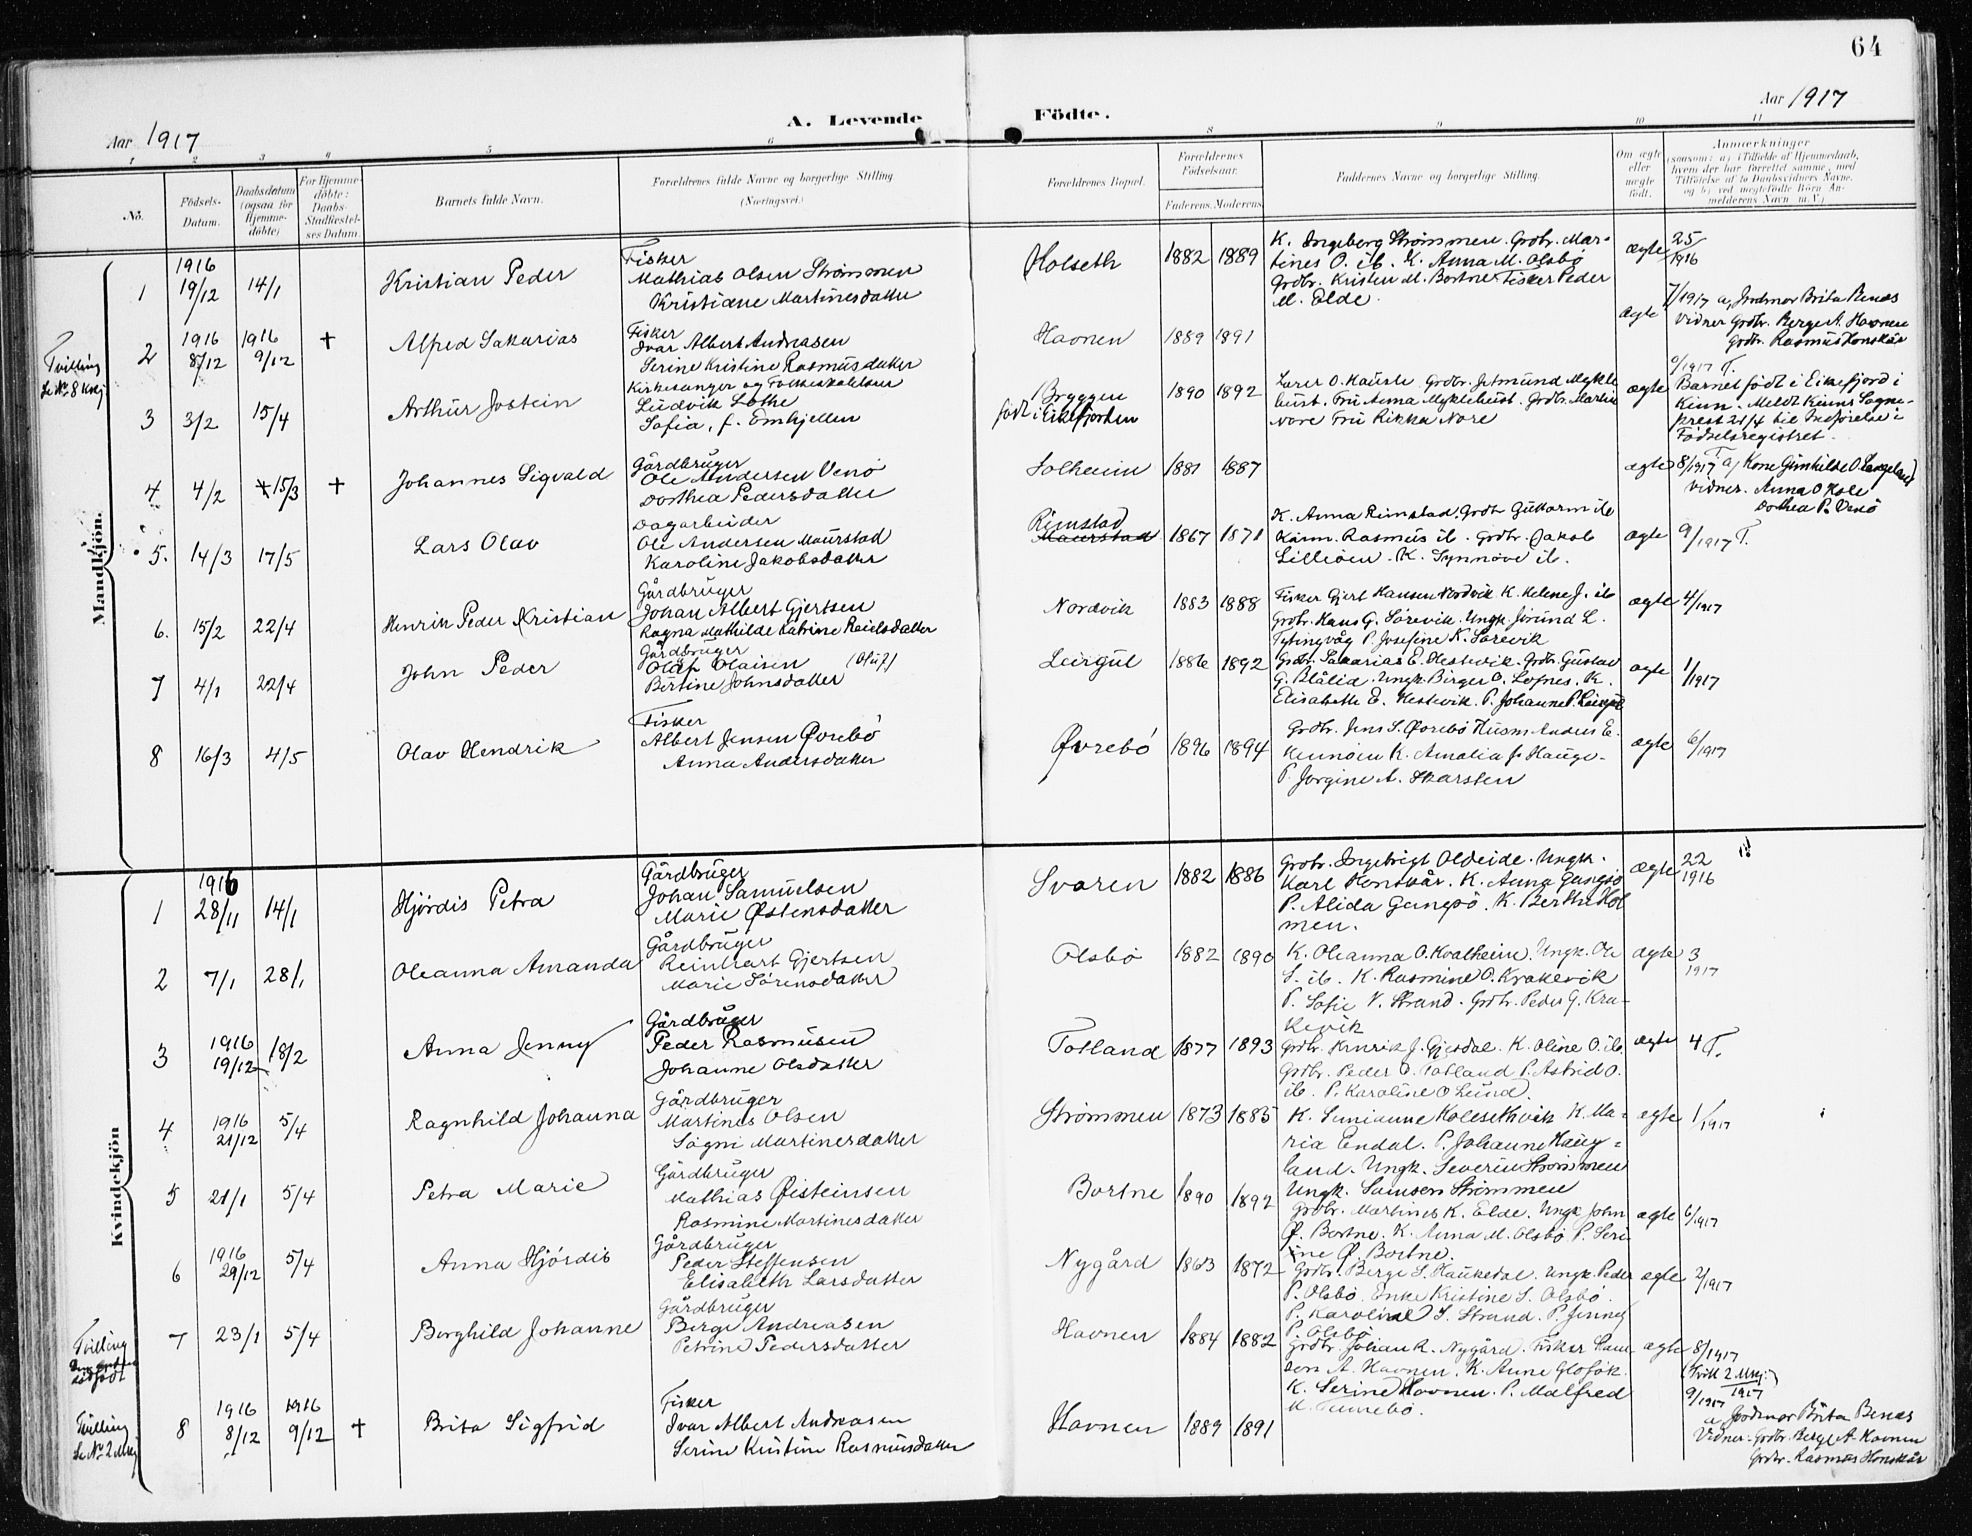 64
Aar 1917
A. Levende Födte.
Aar 1917
1 2 3 4 5 6 8 9 10 11
No.
Födsels-Datum.
Daabsdatum (ogsaa for Hjemme-döbte)
For Hjemme-döbte: Daabs-Stadfæstel-ses Datum.
Barnets fulde Navn.
Forældrenes fulde Navne og borgerlige Stilling. (Næringsvei.)
Forældrenes Bopæl.
Forældrenes Födselsaar.
Faderens. Moderens.
Faddernes Navne og borgerlige Stilling.
Om ægte eller uægte födt.
Anmærkninger
(saasom: a) i Tilfælde af Hjemmedaab, hvem der har forrettet samme, med Tilföielse af to Daabsvidners Navne, og b) ved uægtefödte Börn An-melderens Navn m.V.)
Mandkjön.
1 1916 19/12 14/1 Kristian Peder
Fisker
Mathias Olsen Strömmen
Kristiane Martinesdatter
Holseth 1882 1889
K. Ingeborg Strömmen. Grdbr. Mar-
tines O. ib. K. Anna M. Olsbö
Grdbr. Kristen M. Bortne. Fisker Peder
M. Elde.
ægte 25/1916
Tvilling
Se No 8 Kvkj
2 1916 8/12 1916 9/12 + Alfred Sakarias
Fisker
Ivar Albert Andreasen
Serine Kristine Rasmusdatter
Havnen 1889 1891
ægte 7/1917 a, Jordmor Brita Benas
Vidner Grdbr. Berge A. Havnen
Grdbr. Rasmus Honskår
3 3/2 15/4 Arthur Jostein
Kirkesanger og Folkeskolelærer
Ludvik Lothe
Sofia, f. Emhjellen
Bryggen
født i Eikefjorden
1890 1892
hust. Fru Anna Myklebust. Grdbr. Martin
Nore Fru Rikka Nore
ægte
/1917 T.
Barnet født i Eikefjord i
Kinn. Meldt Kinns Sogne-
prest 21/4 til Indførelse i
Fødselsregistret.
4 4/2 15/3 + Johannes Sigvald
Gårdbruger
Ole Andersen Venö
Dorthea Pedersdatter
Solheim 1881 1887
ægte 8/1917 T a, Kone Gunhilde O Langeland
Vidner. Anna O
Dothea P. Venö
5. 14/3 17/5 Lars Olav
Dagarbeider
Ole Andersen Maurstad
Karoline Jakobsdatter
Rimstad
Maurstad
1867 1871
K. Anna Rimstad. Grdbr Guttorm ib
Rasmus ib. Grdbr. Jakob
Lilleöen. K. Synnöve ib.
ægte 9/1917 T.
6. 15/2 22/4 Henrik Peder Kristian
Gårdbruger
Johan Albert Gjertsen
Ragna Mathilde Katrine Reielsdatter
Nordvik 1883 1888
Fisker Gjert Hansen Nordvik K. Helene J. ib
Grdbr. Hans G. Sörevik. Ungk. Jörund L.
Tytingvåg P. Josefine K. Sörevik
ægte 4/1917
7 4/1 22/4 John Peder
Gårdbruger
Olaf Olaisen (Oluf)
Bertine Johnsdatter
Leirgul 1886 1892
Grdbr. Sakarias E. Hestevik. Grdbr. Gustav
G. Blålid. Ungk. Birger O. Lofnes. K.
Elisabeth E. Hestevik. P. Johanne P. Leirgul
ægte 1/1917
8 16/3 4/5 Olav Hendrik
Fisker
Albert Jensen Øvrebö
Anna Andersdatter
Øvrebö 1896 1894
Grdbr. Jens S. Øvrebö Husm Anders E.
K. Amalia J. Hauge.
P. Jorgine A. Skarsten
ægte 6/1917
Kvindekjön
1 1916 28/11 14/1 Hjördis Petra
Gårdbruger
Johan Samuelsen
Marie Østensdatter
Svoren 1882 1886
Grdbr. Ingebrigt Oldeide. Ungk.
Karl Honskår. K. Anna Gangsö
P. Alida Gangsö. K. Berthe Hol
men.
ægte 22/1916
2 7/1 28/1 Oleanna Amanda
Gårdbruger
Reinhart Gjertsen
Marie Sörensdatter
Olsbö 1882 1890
K. Oleanna O. Kvalheim. Ungk. Ole
S. ib. K. Rasmine O. Krakevik
P. Sofie V. Strand. Grdbr. Peder G. Kra-
kevik
ægte 3/1917
3 1916 19/12 18/2 Anna Jenny
Gårdbruger
Peder Rasmusen
Johanne Olsdatter
Totland 1877 1893
Grdbr. Henrik J. Gjesdal. K. Oline O. ib
Grdbr. Peder O. Totland P. Astrid O.
ib. P. Karoline O Lund.
ægte 4 T.
4 1916 21/12 5/4 Ragnhild Johanna
Gårdbruger
Martines Olsen
Sögni Martinesdatter
Strömmen 1873 1885
K. Simianne Holsethvik K. Ma-
ria Endal. P. Johanne Haug-
land. Ungk. Severin Strömmen
Ungk. Samson Strömmen
ægte 1/1917
5 21/1 5/4 Petra Marie
Gårdbruger
Mathias Øisteinsen
Rasmine Martinesdatter
Bortne 1890 1892
Grdbr. Martines K. Elde. Ungk John
Ø. Bortne. K. Anna M. Olsbö P. Seri-
ne Ø. Bortne.
ægte 6/1917
6 1916 29/12 5/4 Anna Hjördis
Gårdbruger
Peder Steffensen
Elisabeth Larsdatter
Nygård 1863 1872
Grdbr. Berge S. Haukedal. Ungk. Peder
P. Olsbö. Enke Kristine S. Olsbö.
P. Karoline S. Strand. P. Jenny
P. Olsbö
ægte 2/1917
Tvilling
Den anden
dödfödt
7 23/1 5/4 Borghild Johanne
Gårdbruger
Berge Andreasen
Petrine Pedersdatter
Havnen 1884 1882
Grdbr. Johan R. Nygård. Fisker Sam-
son A. Havnen. K. Anne Glofök.
K. Serine Havnen. P. Malfred
ægte 8/1917
Tvilling
Se No 2 Mkj
8 1916 8/12 1916 9/12 + Brita Sigfrid
Fisker
Ivar Albert Andreasen
Serine Kristine Rasmusdatter
Havnen 1889 1891
(Tvill 2 Mkj.)
1917
9/1917
a Jordmor Brita Benas
Vidner. Grdbr. Berge A. Havnen
Grdbr. Rasmus Honskår